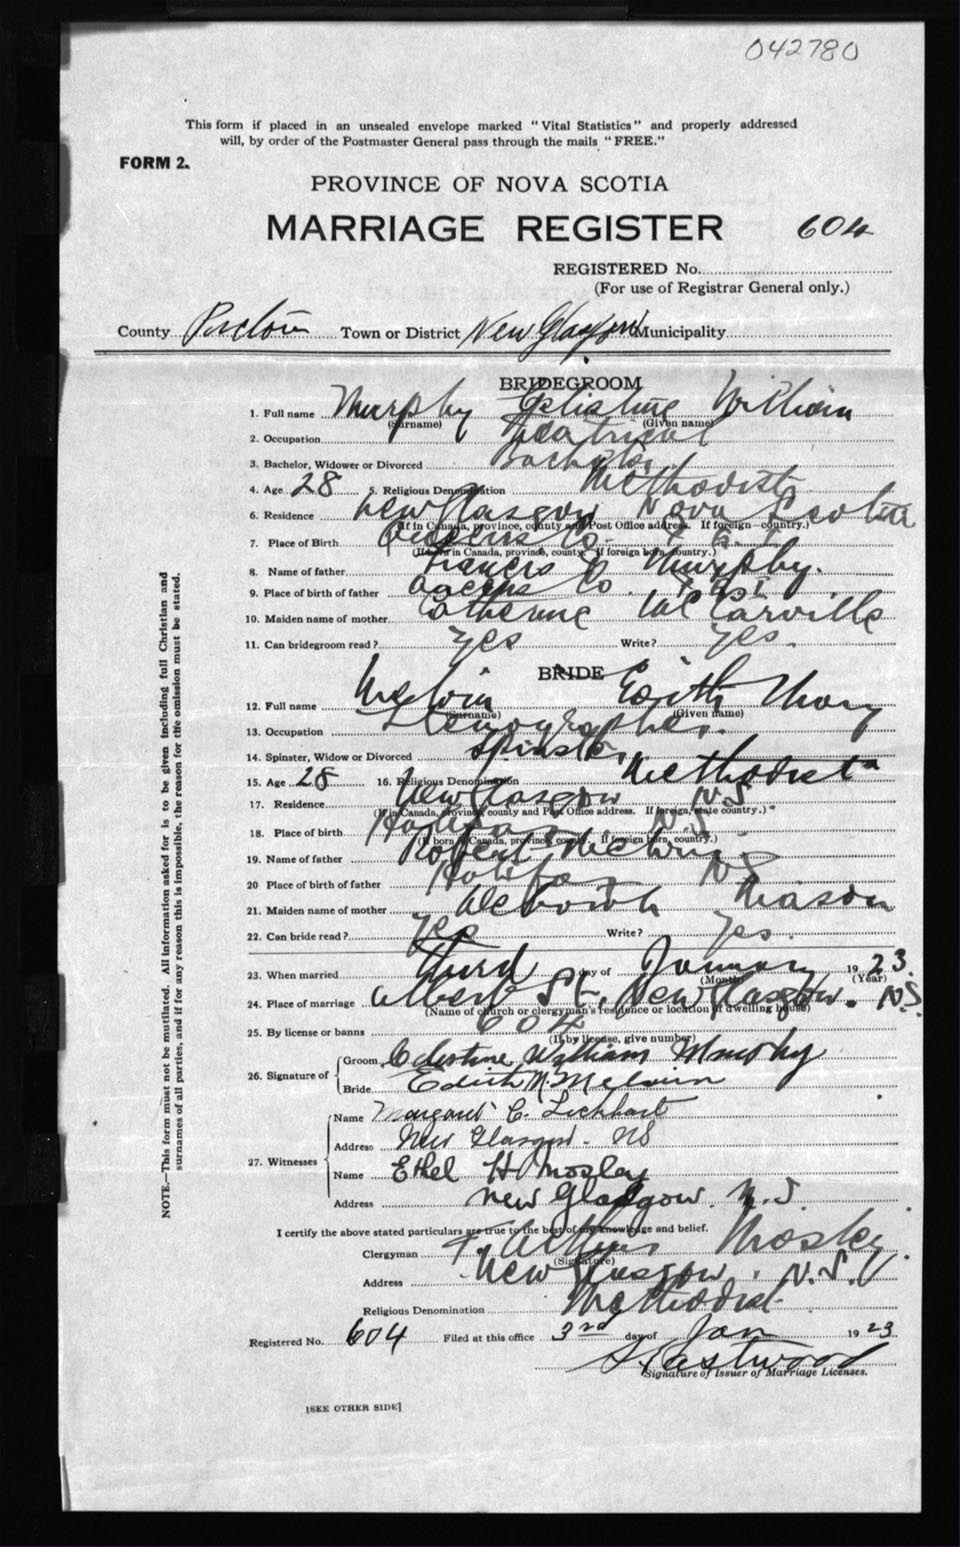 042780
This form if placed in an unsealed envelope marked "Vital Statistics" and properly addressed
will, by order of the Postmaster General pass through the mails "FREE."
FORM 2.
PROVINCE OF NOVA SCOTIA
MARRIAGE REGISTER 604
REGISTERED No.
(For use of Registrar General only.)
County Pictou Town or District New Glasgow Municipality
BRIDEGROOM
1. Full name Murphy Celistine William
(Surname) (Given name)
2. Occupation
3. Bachelor, Widower or Divorced Bachelor
4. Age 28 5. Religious Denomination Methodist
6. Residence New Glasgow Nova Scotia
(If in Canada, province, county and Post Office address. If foreign—country.)
7. Place of Birth Queens Co. P. E. I
(If born in Canada, province, county. If foreign born, country.)
8. Name of father Francis Murphy.
9. Place of birth of father Queens Co. P E I
10. Maiden name of mother Catherine McCarville
11. Can bridegroom read? yes Write? yes.
BRIDE
12. Full name Melvin Edith May
(Surname) (Given name)
13. Occupation Stenographer.
14. Spinster, Widow or Divorced Spinster
15. Age 28 16. Religious Denomination Methodist
17. Residence New Glasgow N.S.
(If in Canada, province, county and Post Office address. If foreign, state country.)
18. Place of birth Halifax N.S.
(If born in Canada, province, county. If foreign born, country.)
19. Name of father Robert Melvin
20 Place of birth of father Halifax NS
21. Maiden name of mother Deborah Mason
22. Can bride read? yes Write? yes.
23. When married third day of January 1923.
(Month) (Year)
24. Place of marriage Albert St, New Glasgow. N.S.
(Name of church or clergyman's residence or location of dwelling house)
25. By license or banns 604
(If by license, give number)
26. Signature of
Groom Celestine William Murphy
Bride Edith M. Melvin
27. Witnesses
Name Margaret C. Lockhart
Address New Glasgow - NS
Name Ethel H Mosley
Address New Glasgow. N.S
I certify the above stated particulars are true to the best of my knowledge and belief.
Clergyman Mosley
(Signature)
Address New Glasgow, N.S.
Religious Denomination Methodist
Registered No. 604 Filed at this office 3rd day of Jan 1923
Eastwood
Signature of Issuer of Marriage Licenses.
[SEE OTHER SIDE]
NOTE.—This form must not be mutilated. All information asked for is to be given including full Christian and
surnames of all parties, and if for any reason this is impossible, the reason for the omission must be stated.